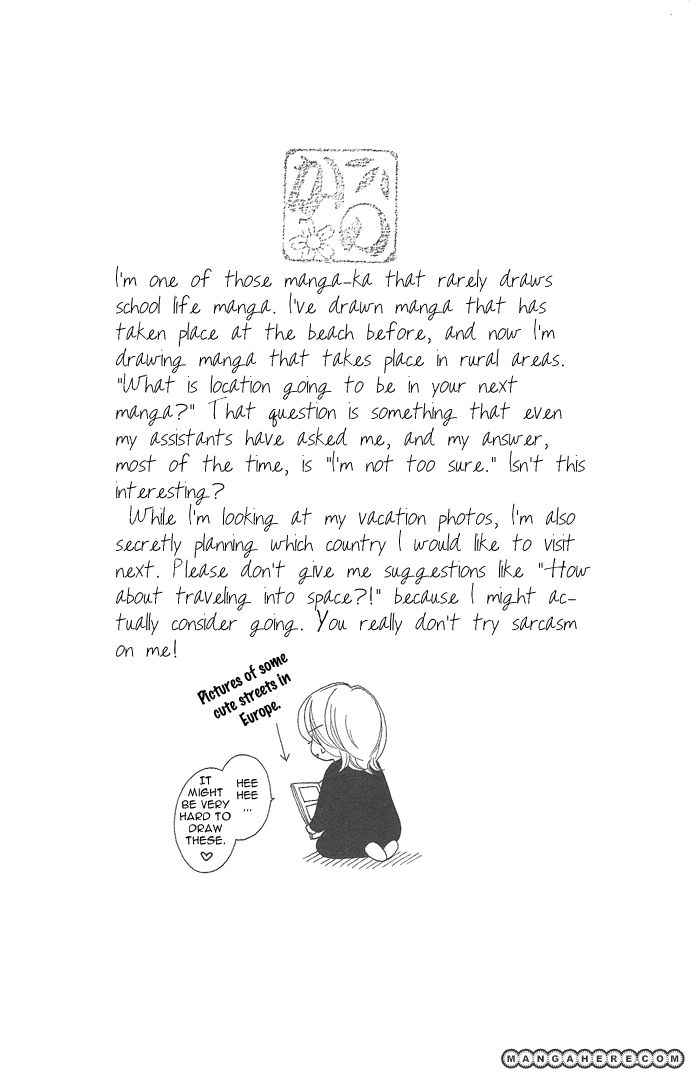 I'm one of those manga-ka that rarely draws
school life manga. I've drawn manga that has
taken place at the beach before, and now I'm
drawing manga that takes place in rural areas.
"What is location going to be in your next
manga?" That question is something that even
my assistants have asked me, and my answer,
most of the time, is "I'm not too sure." Isn't this
interesting?
While I'm looking at my vacation photos, I'm also
secretly planning which country I would like to visit
next. Please don't give me suggestions like "How
about traveling into space?!" because I might ac-
tually consider going. You really don't try sarcasm
on me!
Pictures of some
cute streets in
Europe.
HEE
HEE
...
IT
MIGHT
BE VERY
HARD TO
DRAW
THESE.
♡
MANGAHERE.COM